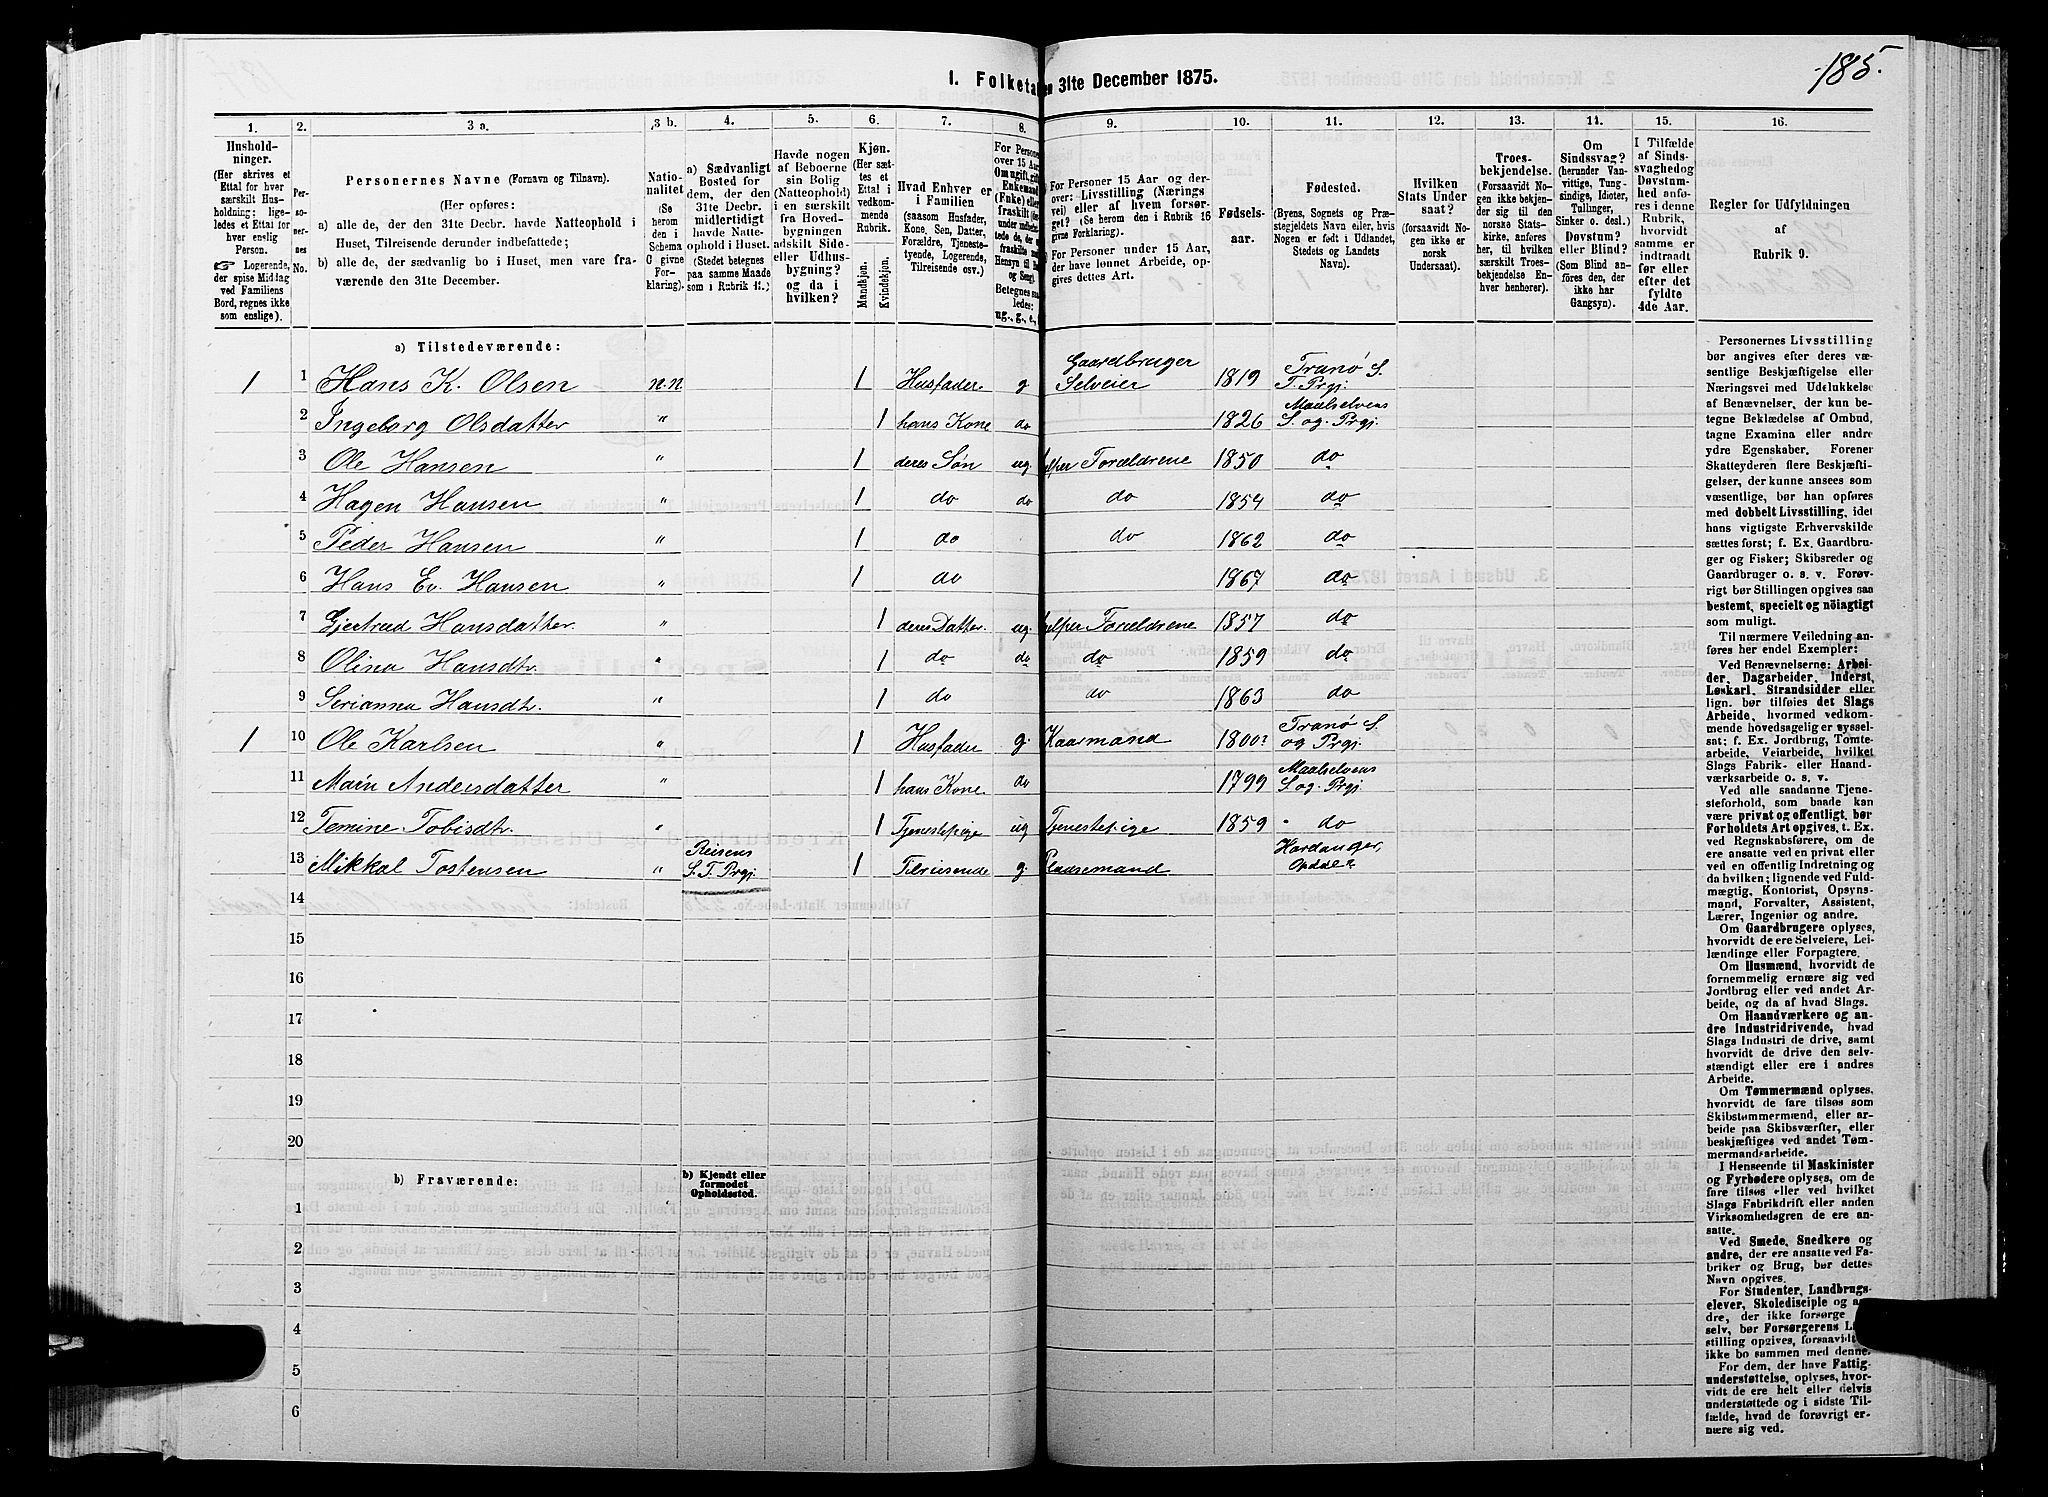 185.
1. Folketa en 31te December 1875.
1. 2. 3 a. 3 b. 4. 5. 6. 7. 8. 9. 10. 11. 12. 13. 14. 15. 16.
Hushold-
ninger.
(Her skrives et
Ettal for hver
særskilt Hus-
holdning; lige-
ledes et Ettal
for hver
enslig
Person.
☞ Logerende,
der spise Middag
ved Familiens
Bord, regnes ikke
som enslige).
Per-
so-
ner-
nes
No.
Personernes Navne (Fornavn og Tilnavn).
(Her opføres:
a) alle de, der den 31te Decbr. havde Natteophold i
Huset, Tilreisende derunder indbefattede;
b) alle de, der sædvanlig bo i Huset, men vare fra-
værende den 31te December.
Natio-
nalitet
(Se
herom
den i
Schema
C givne
For-
klaring).
a) Sædvanligt
Bosted for
dem, der den
31te Decbr.
midlertidigt
havde Natte-
ophold i Huset.
(Stedet betegnes
paa samme Maade
som i Rubrik 11.)
Havde nogen
af Beboerne
sin Bolig
(Natteophold)
i en særskilt
fra Hoved-
bygningen
adskilt Side-
eller Udhus-
bygning?
og da i
hvilken?
Kjøn.
(Her sæt-
tes et
Ettal i
vedkom-
mende
Rubrik.
Mandkjøn.
Kvindekjøn.
Hvad Enhver er
i Familien
(saasom Husfader,
Kone, Søn, Datter,
Forældre, Tjeneste-
tyende, Logerende,
Tilreisende osv.)
For Personer
over 15 Aar:
Om ugift, gift,
Enkemand
(Enke) eller
fraskilt
Hensyn til
og Seng.
Betegnes saa-
ledes:
ug., g., e.,
For Personer 15 Aar og der-
over: Livsstilling (Nærings
vei) eller af hvem forsør-
get? (Se herom den i Rubrik 16
givne Forklaring.)
For Personer under 15 Aar,
der have lønnet Arbeide, op-
gives dettes Art.
Fødsels-
aar.
Fødested.
(Byens, Sognets og Præ-
stegjeldets Navn eller, hvis
Nogen er født i Udlandet,
Stedets og Landets
Navn).
Hvilken
Stats Under
saat?
(forsaavidt No-
gen ikke er
norsk
Undersaat).
Troes-
bekjendelse.
(Forsaavidt No-
gen ikke bekjen-
der sig til den
norske Stats-
kirke, anføres
her, til hvilken
særskilt Troes-
bekjendelse En-
hver henhører).
Om
Sindssvag?
(herunder Van-
vittige, Tung-
sindige, Idioter,
Tullinger,
Sinker o. desl.).
Døvstum?
eller Blind?
(Som Blind an-
føres den, der
ikke har
Gangsyn).
I Tilfælde
af Sinds-
svaghed og
Døvstum-
hed anfø-
res i denne
Rubrik,
hvorvidt
samme er
indtraadt
før eller
efter det
fyldte
4de Aar.
Regler for Udfyldningen
af
Rubrik 9.
a) Tilstedeværende:
1 1 Hans K. Olsen n.n 1 Husfader g Gaardbruger
Selveier 1819 Tranø S.
T. Prgj.
2 Ingeborg Olsdatter " 1 hans Kone do 1826 Maalselvens
S. og. Prgj.
3 Ole Hansen " 1 deres Søn ug. elper Forældrene 1850 do
4 Hagen Hansen " 1 do do do 1854 do
5 Peder Hansen " 1 do do 1862 do
6 Hans Ev. Hansen " 1 do 1867 do
7 Gjertrud Hansdatter. " 1 deres Datter. ug. elper Forældrene 1857 do
8 Olina Hansdtr. " 1 do do do 1859 do
9 Serianna Hansdtr. " 1 do do 1863 do
1 10 Ole Karlsen " 1 Husfader g. Kaarmand 1800? Tranø S.
og Prgj.
11 Marin Andersdatter " 1 hans Kone do 1799 Maalselvens
S. og. Prgj
12 Temine Tobisdtr. " 1 Tjenestepige ug Tjenestepige 1859 " do
13 Mikkal Tostensen " Reisens
S. T. Prgj. 1 Tilreisende g. Plassemand Hardanger,
14
15
16
17
18
19
20
b) Fraværende:
b) Kjendt eller
formodet
Opholdssted.
1
2
3
4
5
6
Personernes Livsstilling
bør angives efter deres væ-
sentlige Beskjæftigelse eller
Næringsvei med Udelukkelse
af Benævnelser, der kun be-
tegne Beklædelse af Ombud,
tagne Examina eller andre
ydre Egenskaber. Forener
Skatteyderen flere Beskjæfti-
gelser, der kunne ansees som
væsentlige, bør han opføres
med dobbelt Livsstilling, idet
hans vigtigste Erhvervskilde
sættes først; f. Ex. Gaardbru-
ger og Fisker; Skibsreder og
Gaardbruger o. s. v. Forøv-
rigt bør Stillingen opgives saa
bestemt, specielt og nöiagtigt
som muligt.
Til nærmere Veiledning an-
føres her endel Exempler:
Ved Benævnelserne: Arbei-
der, Dagarbeider, Inderst,
Løskarl, Strandsidder eller
lign. bør tilføies det Slags
Arbeide, hvormed vedkom-
mende hovedsagelig er syssel-
sat; f. Ex. Jordbrug, Tomte-
arbeide, Veiarbeide, hvilket
Slags Fabrik- eller Haand-
værksarbeide o. s. v.
Ved alle saadanne Tjene-
steforhold, som baade kan
være privat og offentligt, bør
Forholdets Art opgives, t. Ex.
ved Regnskabsførere, om de
ere ansatte ved en privat eller
ved en offentlig Indretning og
da hvilken; lignende ved Fuld-
mægtig, Kontorist, Opsyns-
mand, Forvalter, Assistent,
Lærer, Ingeniør og andre.
Om Gaardbrugere oplyses,
hvorvidt de ere Selveiere, Lei-
lændinge eller Forpagtere.
Om Husmænd, hvorvidt de
fornemmelig ernære sig ved
Jordbrug eller ved andet Ar-
beide, og da af hvad Slags.
Om Haandværkere og an-
dre Industridrivende, hvad
Slags Industri de drive, samt
hvorvidt de drive den selv-
stændigt eller ere i andres
Arbeide.
Om Tømmermænd oplyses,
hvorvidt de fare tilsøs som
Skibstømmermænd, eller ar-
beide paa Skibsværfter, eller
beskjæftiges ved andet Tøm-
mermandsarbeide.
I Henseende til Maskinister
og Fyrbødere oplyses, om de
fare tilsøs eller ved hvilket
Slags Fabrikdrift eller anden
Virksomhedsgren de ere an-
satte.
Ved Smede, Snedkere og
andre, der ere ansatte ved Fa-
briker og Brug, bør dettes
Navn opgives.
For Studenter, Landbrugs-
elever, Skoledisciple og a
dre, der ikke forsørge
selv, bør Forsørgerens L
stilling opgives, forsaavidt
ikke bo sammen med denne.
For dem, der have Fattig-
understøttelse, oplyses, hvor-
vidt de ere helt eller delvis
understøttede og i sidste Til-
fælde, hvad de forøvrigt er-
nære sig ved.